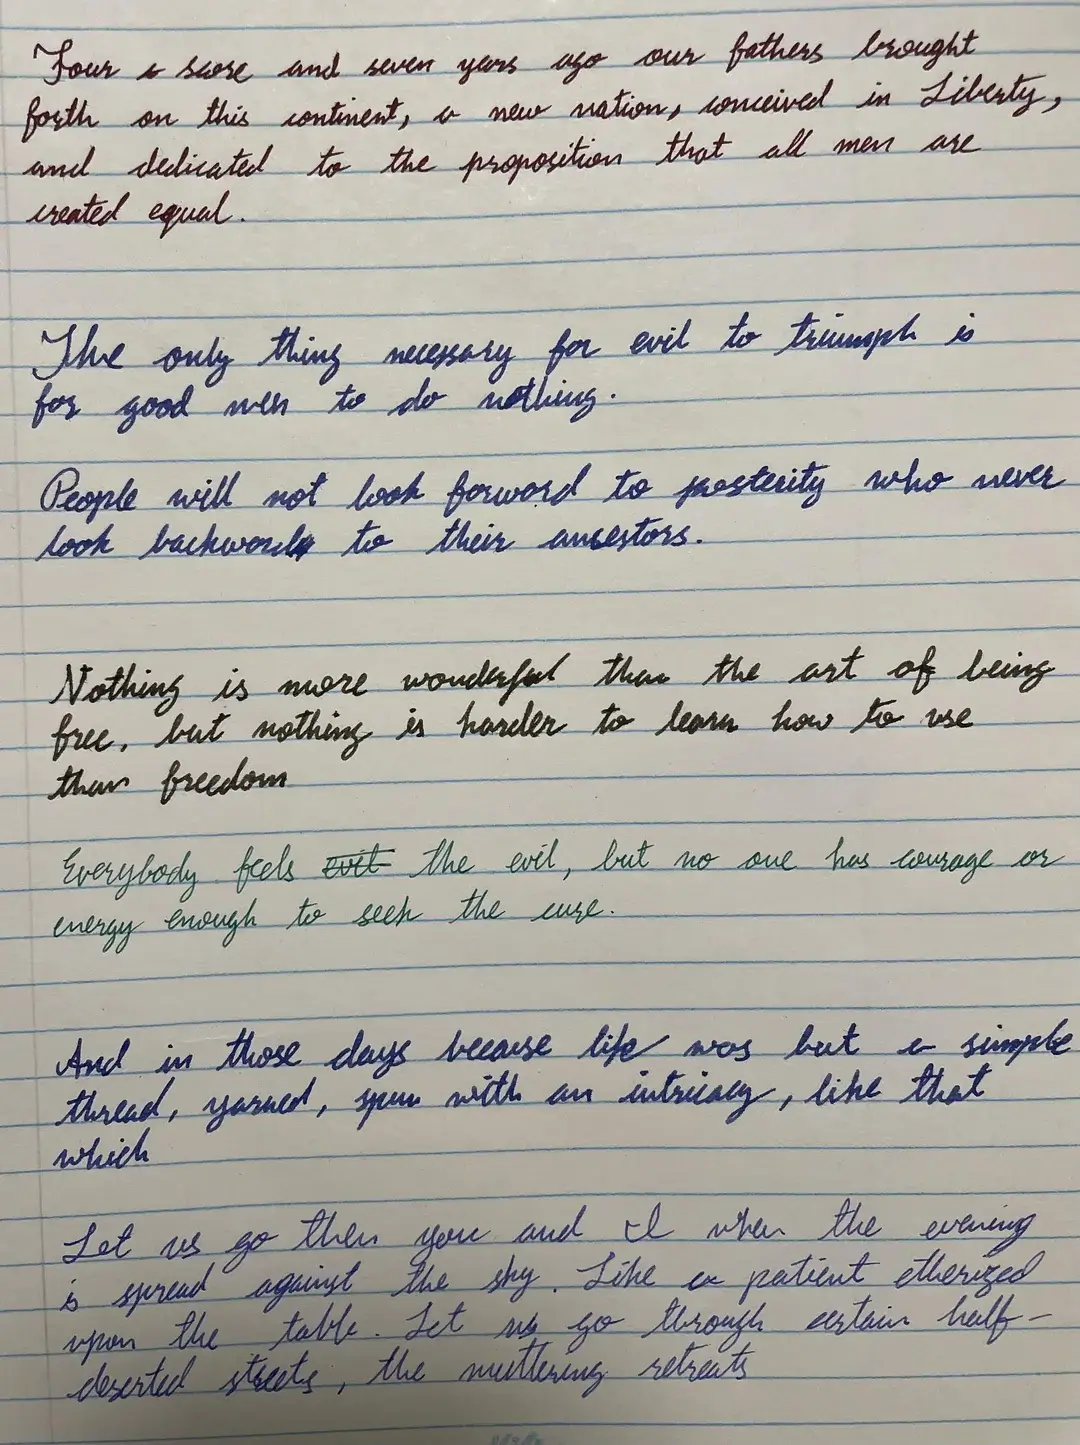 Four a score and seven years ago our fathers brought
forth on this continent, a new nation, conceived in Liberty,
and dedicated to the proposition that all men are
created equal.
The only thing necessary for evil to triumph is
for good men to do nothing.
People will not look forword to posterity who never
look backwords to their ancestors.
Nothing is more wonderful than the art of being
free, but nothing is harder to learn how to use
than freedom
Everybody feels evil the evil, but no one has courage or
energy enough to seek the cure.
And in those days because life was but a simple
thread, yarned, spun with an intricacy, like that
which
Let us go then you and I when the evening
is spread against the sky. Like a patient etherized
upon the table. Let us go through certain half-
deserted streets, the muttering retreats